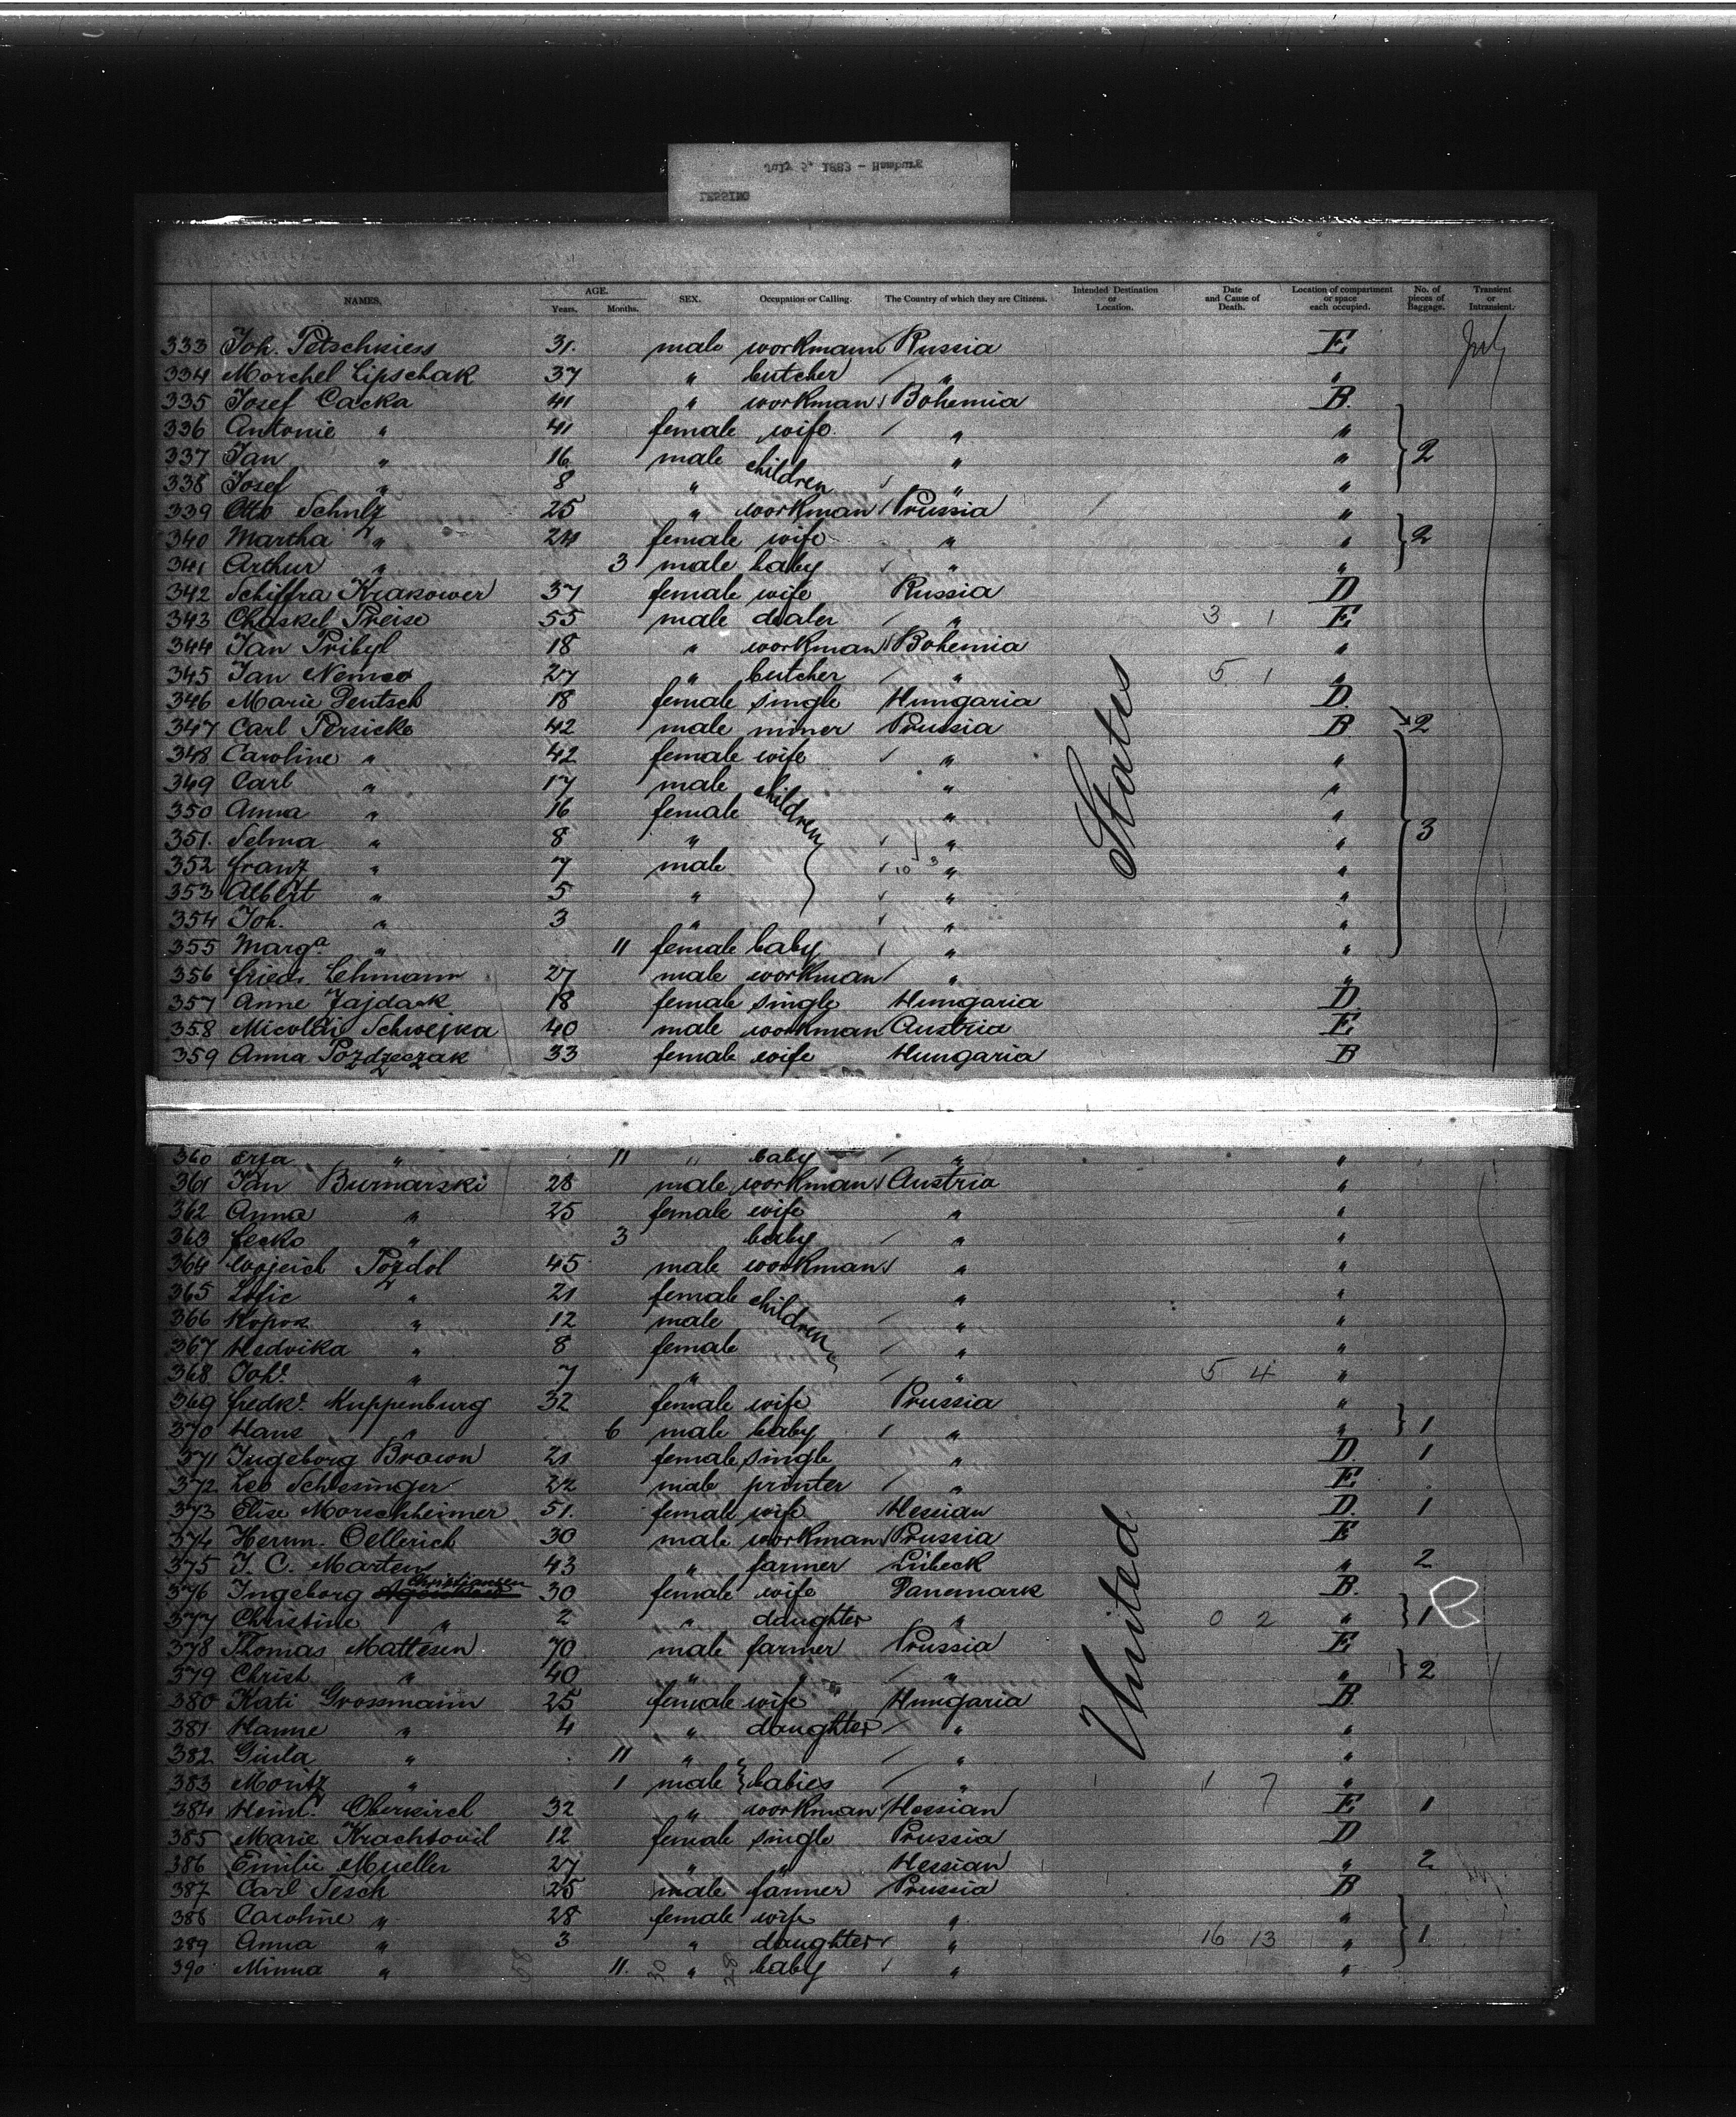 July 5' 1883 - Hamburg
LESSING
NAMES. AGE. Years. Months. SEX. Occupation or Calling. The Country of which they are Citizens. Intended Destination or Location. Date and Cause of Death. Location of compartment or space each occupied. No. of pieces of Baggage. Transient or Intransient.
333 Joh. Petschkiess 31. male workmann Russia E
334 Morchel Lipschak 37 " butcher " "
335 Josef Cacka 41 " workman Bohemia B.
336 Antonie " 41 female wife " "
337 Jan " 16 male children " " 2
338 Josef " 8 " " "
339 Otto Schulz 25 " workman Prussia "
340 Martha " 24 female wife " " 2
341 Arthur " 3 male baby " "
342 Schiffra Krakower 37 female wife Russia D
343 Chaskel Preise 55 male dealer " 3 1 E
344 Jan Pribyl 18 " workman Bohemia "
345 Jan Nemec 27 " butcher " 5 1 "
346 Marie Deutsch 18 female single Hungaria D.
347 Carl Persicke 42 male miner Prussia B 2
348 Caroline " 42 female wife " "
349 Carl " 17 male children " "
350 Anna " 16 female " "
351. Selma " 8 " " " 3
352 Franz " 7 male 10 3 " "
353 Albert " 5 " " "
354 Joh. " 3 " " "
355 Marg.a " 11 female baby " "
356 Friedr. Lehmann 27 male workman " "
357 Anne Zajdak 18 female single Hungaria D
358 Micolai Schwejka 40 male workman Austria E
359 Anna Pozdzeczak 33 female wife Hungaria B
360 " 11 " baby " "
361 Jan Burnarski 28 male workman Austria "
362 Anna " 25 female wife " "
363 " 3 baby " "
364 Wojeich Pozdol 45 male workman " "
365 " 21 female children " "
366 " 12 male " "
367 Hedvika " 8 female " "
368 Joh. " 7 " " 5 4 "
369 Fredk. Kuppenburg 32 female wife Prussia "
370 Hans " 6 male baby " " 1
371 Ingeborg Brown 21 female single " D. 1
372 Leo Schlesinger 22 male printer " E
373 Elise Morschheimer 51. female wife Hessian D. 1
374 Herm. Oellerich 30 male workman Prussia E
375 J. C. Martens 43 " farmer Lübeck " 2
376 Ingeborg Christiansen 30 female wife Danemark B.
377 Christine " 2 " daughter " 0 2 " 1
378 Thomas Mattesen 70 male farmer Prussia E
379 Christ. " 40 " " " " 2
380 Kati Grossmann 25 female wife Hungaria B
381. Hanne " 4 " daughter " "
382 Giula " 11 " " "
383 Moritz " 1 male babies " 1 7 "
384 Heinr. Oberkirch 32 " workman Hessian E 1
385 Marie Krachtovil 12 female single Prussia D
386 Emilie Mueller 27 " " Hessian " 2
387 Carl Tesch 25 male farmer Prussia B
388 Caroline " 28 female wife " "
389 Anna " 3 " daughter " 16 13 " 1
390 Minna " 11. " baby " "
58 30 28
United States